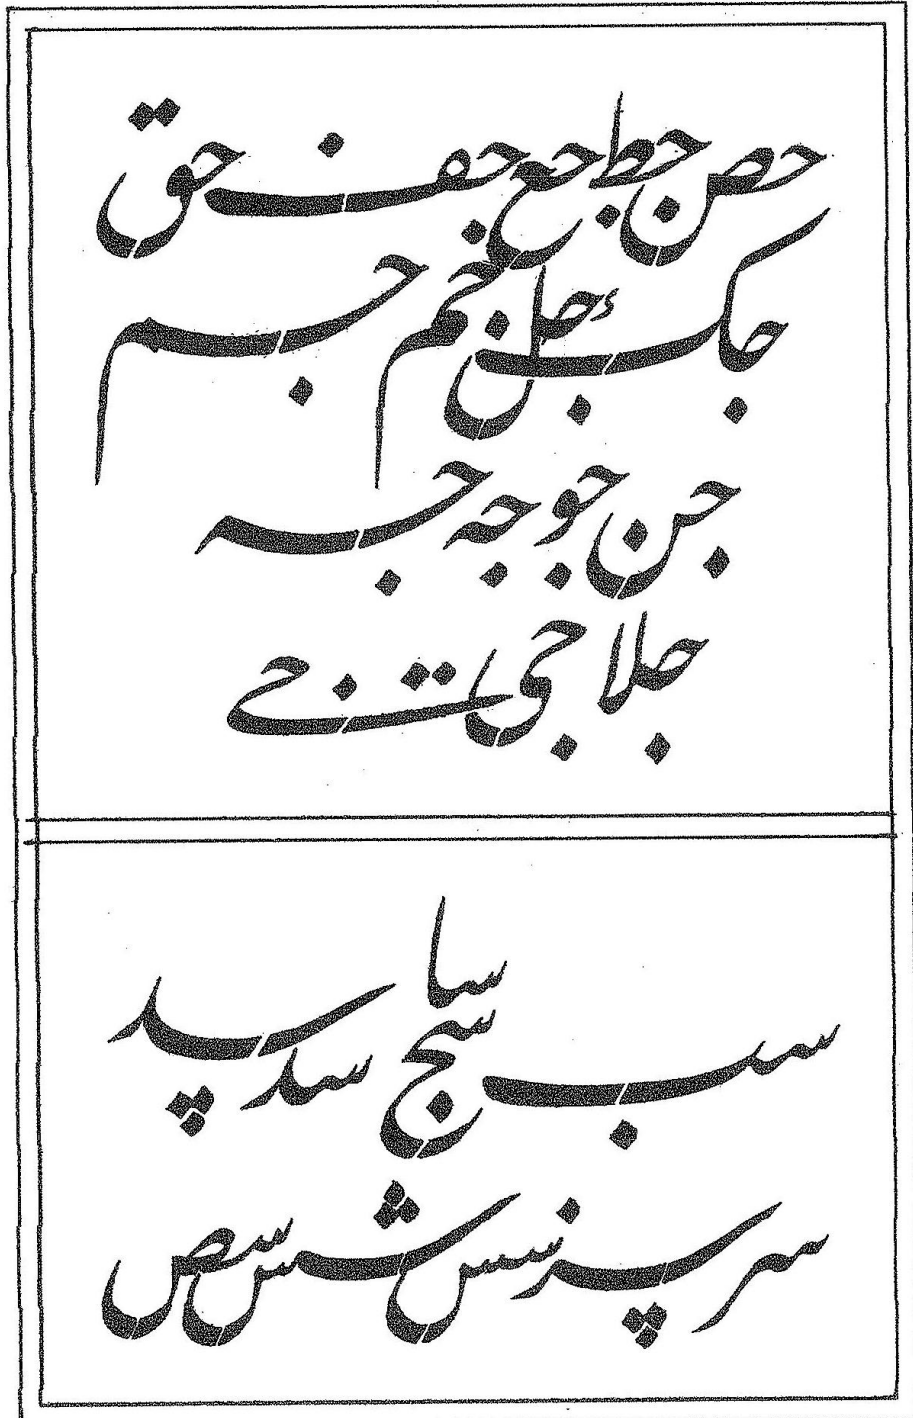 حص جط جع جف حق
جک جل جم جم
جن جو جه جه
جلا جی جے
سا
سب سج سد سد
سر سز سس شس سص